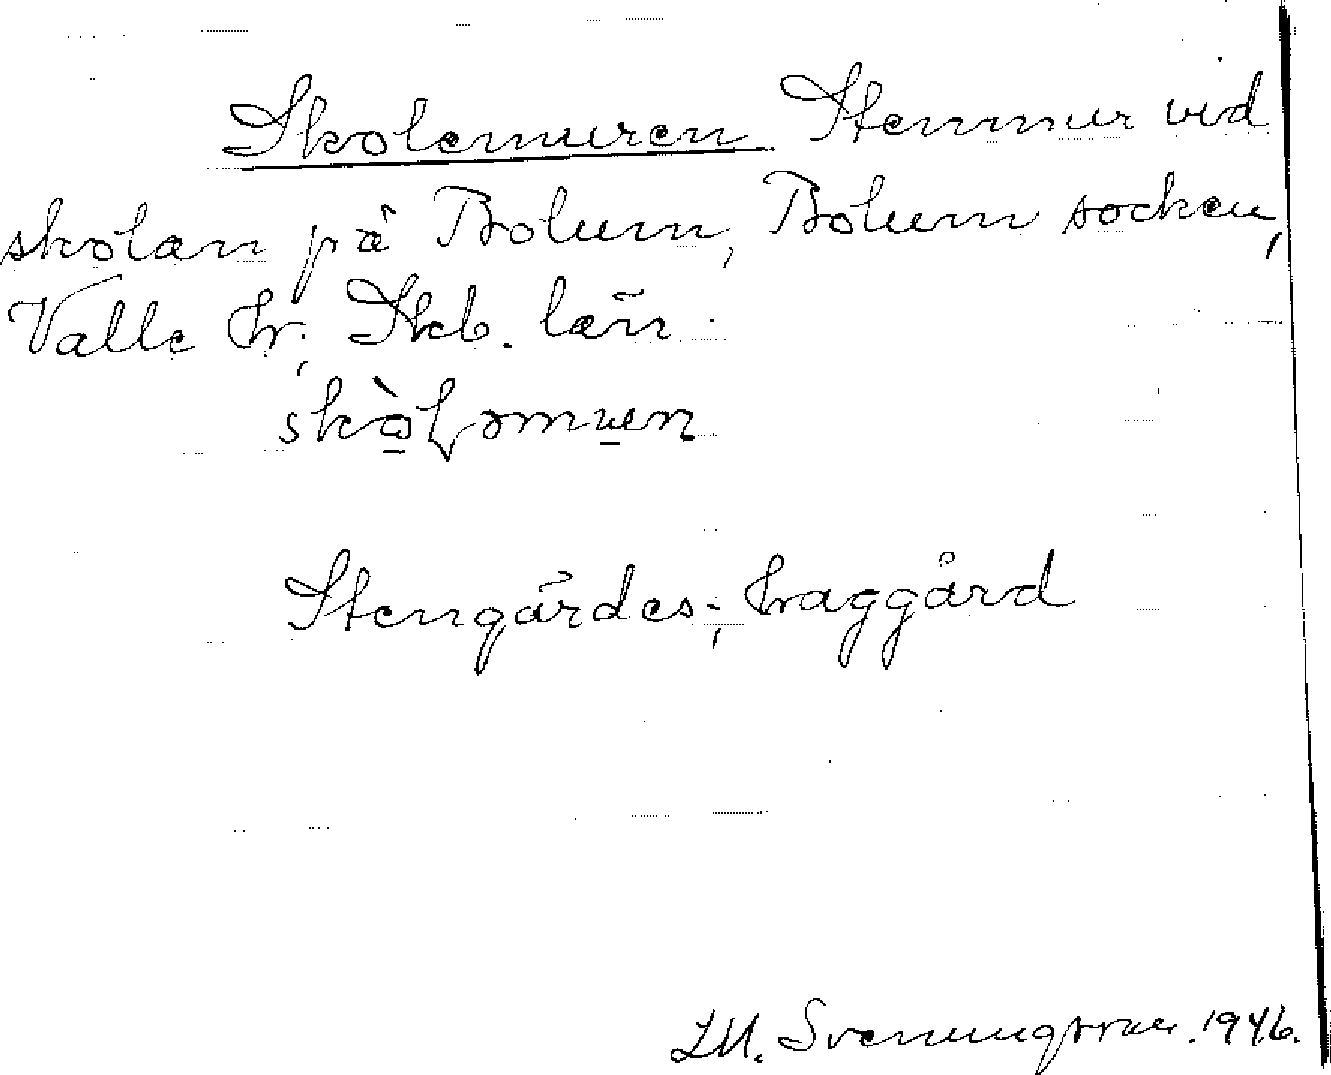 Skolemuren Stenmur vid
skolan på Bolum, Bolum socken,
Valle hr, Skb. län.
Stengärdes-, hraggård
L.M. Svenungsson. 1946.